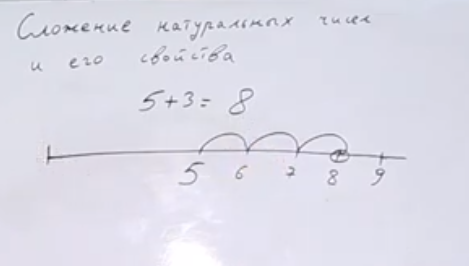 Сложение натуральных чисел
и его свойства
5+3= 8
5 6 7 8 9